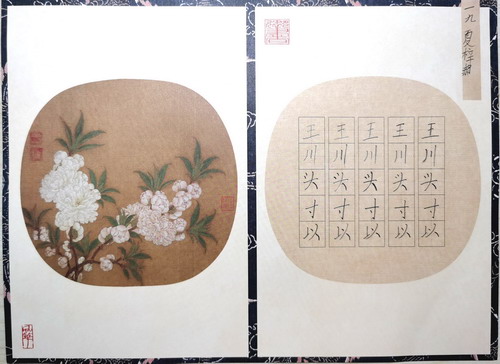 一九 夏梓
王 王 王 王 王
川 川 川 川 川
头 头 头 头 头
寸 寸 寸 寸 寸
以 以 以 以 以